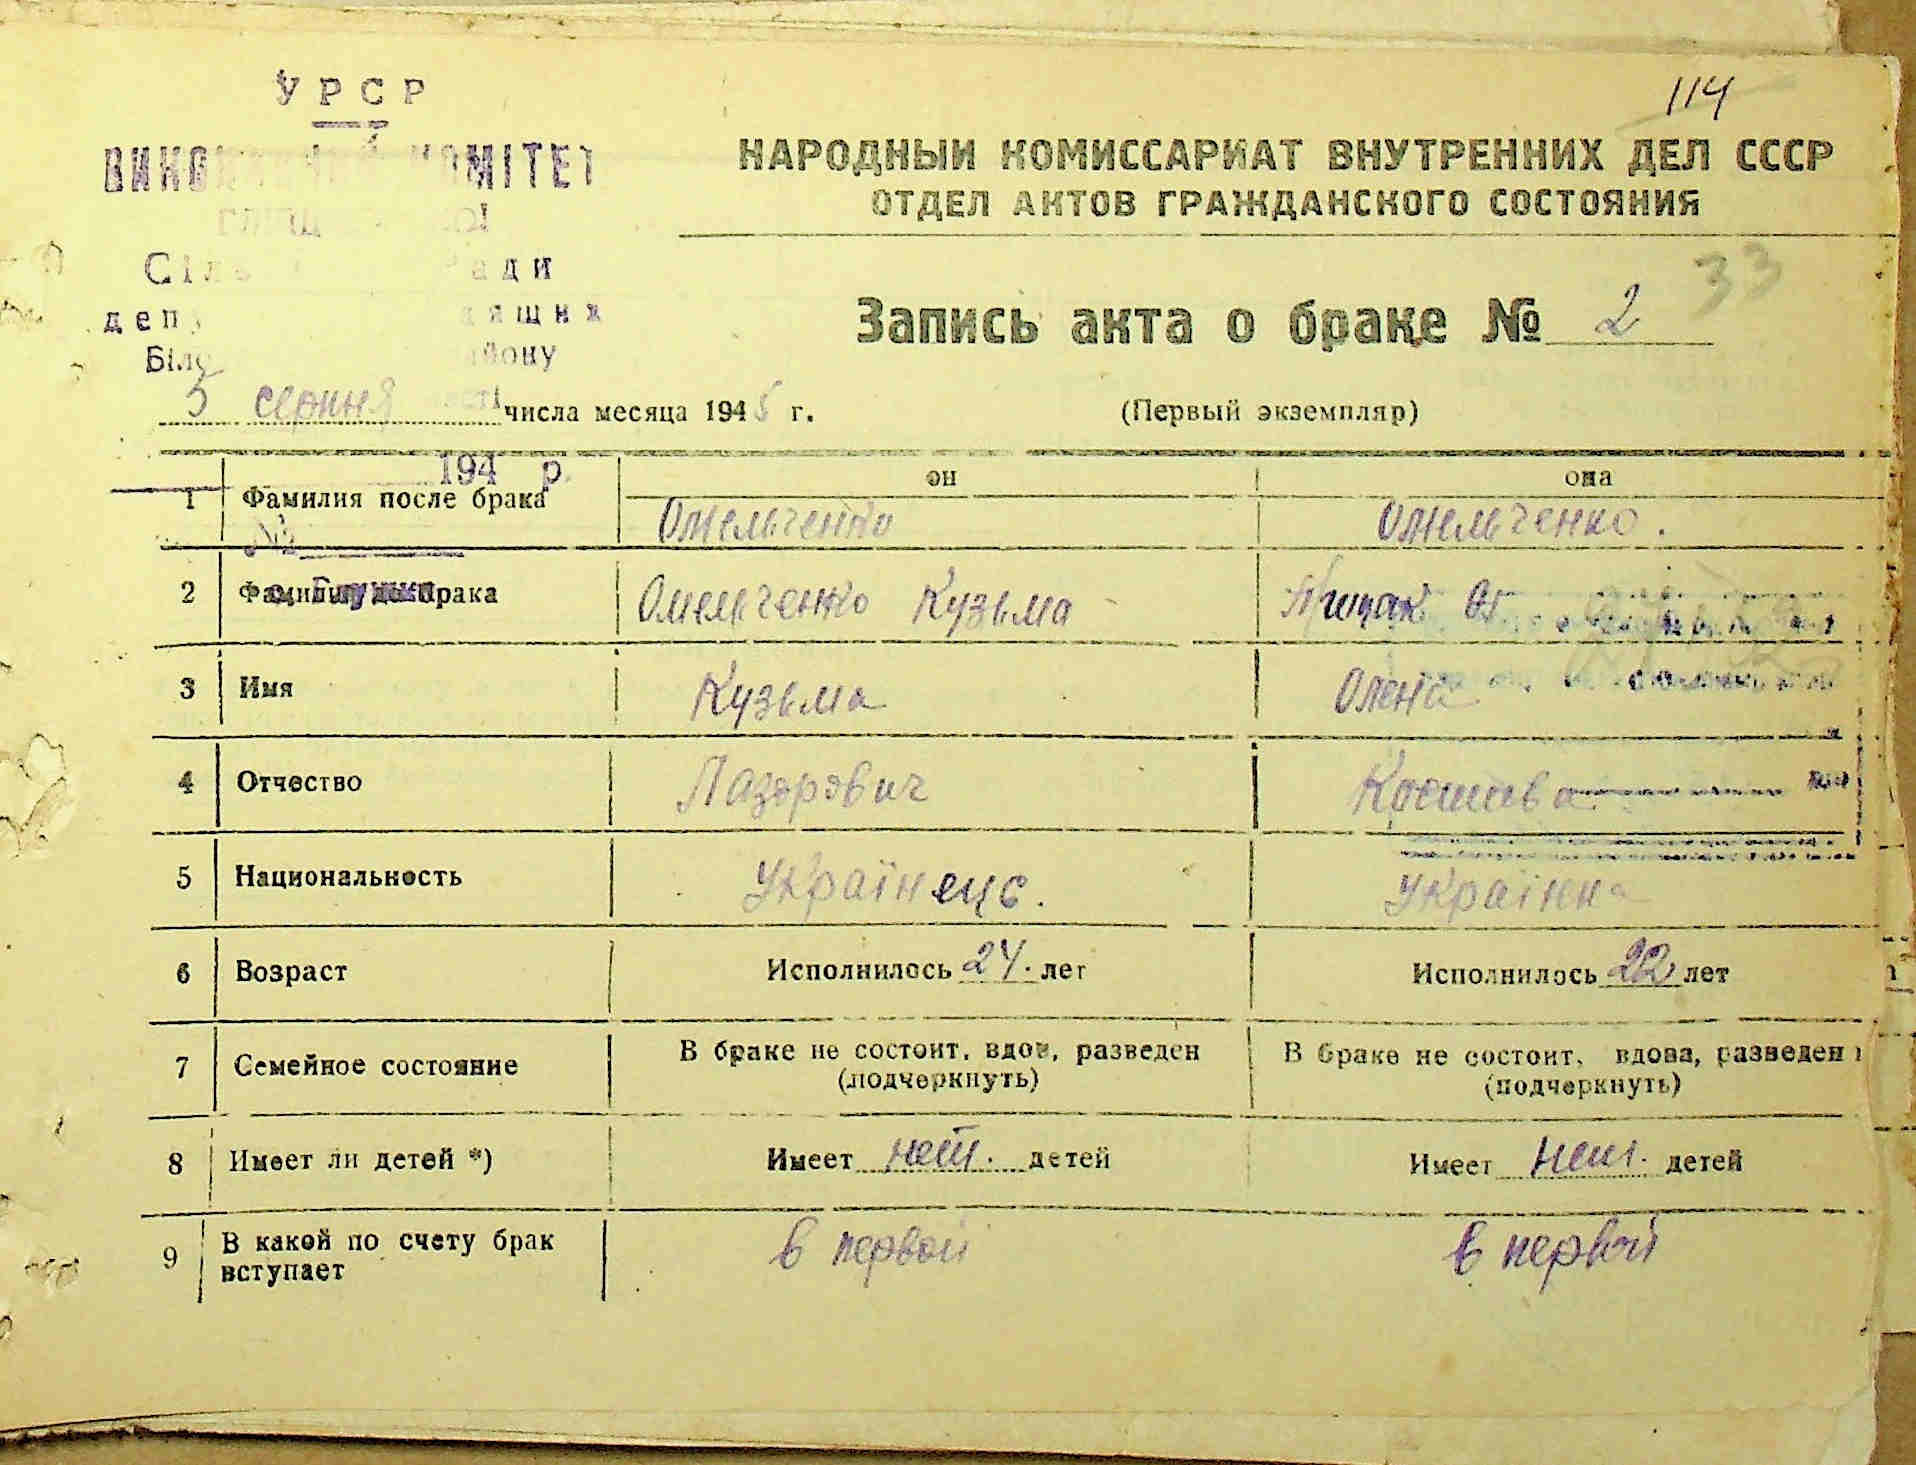 УРСР
114
КОМІТЕТ
НАРОДНЫЙ КОМИССАРИАТ ВНУТРЕННИХ ДЕЛ СССР
ОТДЕЛ АКТОВ ГРАЖДАНСКОГО СОСТОЯНИЯ
33
Запись акта о браке № 2
5 серпня числа месяца 1945 г. (Первый экземпляр)
194 р.
он она
1 Фамилия после брака Омельченко Омельченко.
№
2 Фамилия до брака Омельченко Кузьма
3 Имя Кузьма Олена
4 Отчество Лазорович
5 Национальность Українець. Українка
6 Возраст Исполнилось 24. лет Исполнилось 22 лет
7 Семейное состояние В браке не состоит, вдов, разведен (подчеркнуть) В браке не состоит, вдова, разведен (подчеркнуть)
8 Имеет ли детей *) Имеет нет. детей Имеет нет. детей
9 В какой по счету брак вступает в первой в первой